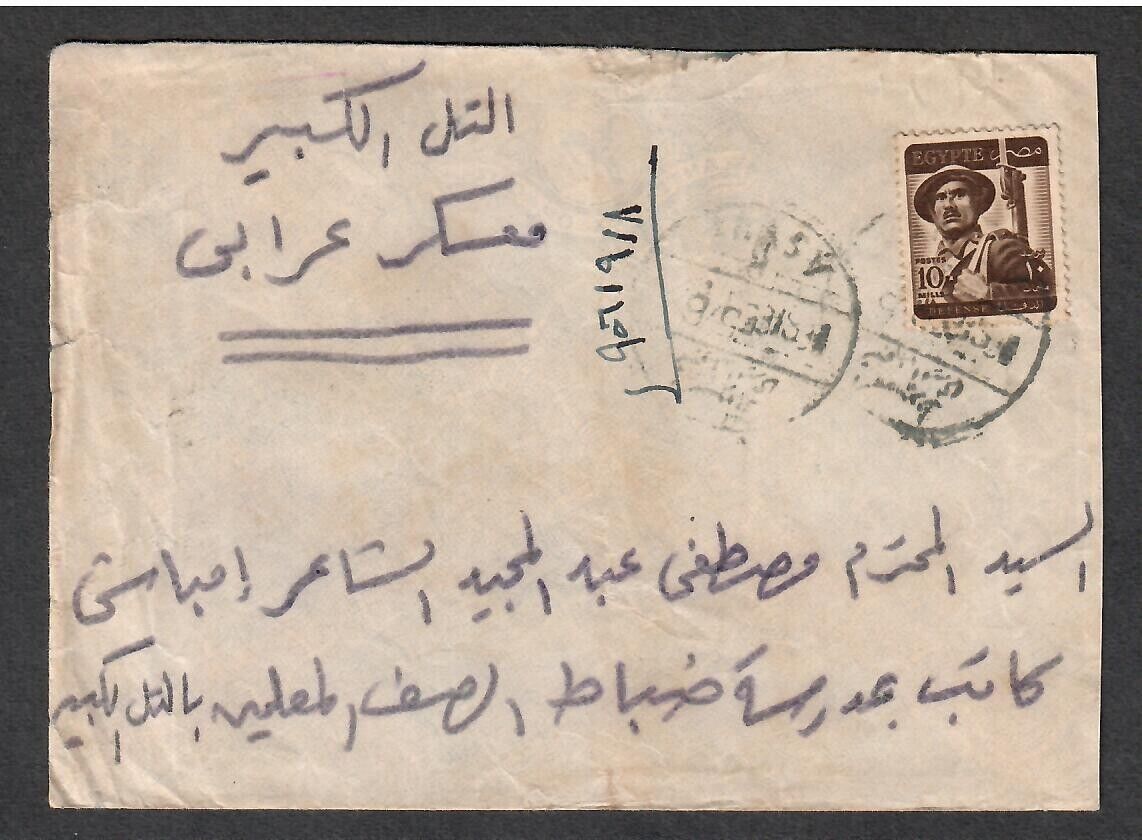 التل الكبير
معسكر عرابى
EGYPTE مصر
POSTES
10
MILLS
١٠
DEFENSE
السيد المحترم مصطفى عبد المجيد الشاعر إمباشى
كاتب بمدرسة ضباط الصف المعلمين بالتل الكبير